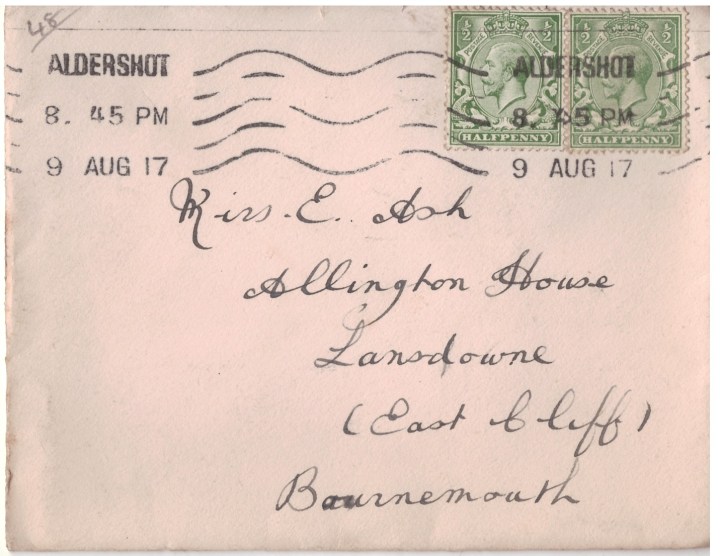 48
ALDERSHOT
8. 45 PM
9 AUG 17
ALDERSHOT
8. 45 PM
9 AUG 17
½ ½
POSTAGE REVENUE
HALFPENNY
½ ½
POSTAGE REVENUE
HALFPENNY
Miss. E. Ash
Allington House
Lansdowne
(East Cliff)
Bournemouth